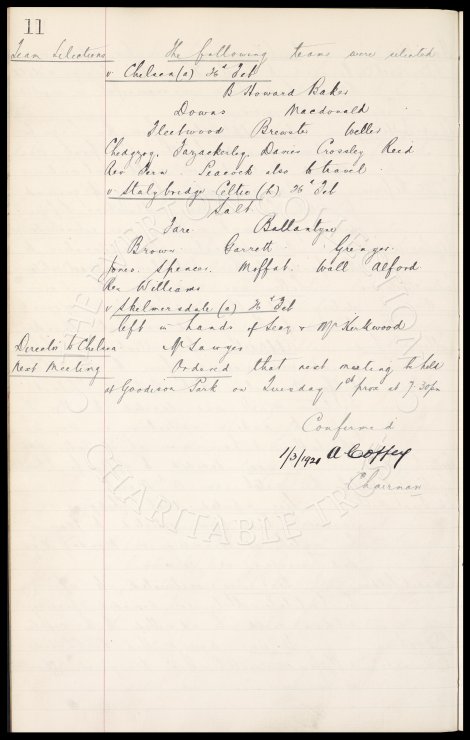 11
Team Selections The following teams were selected
v Chelsea (a) 26th Feb
B Howard Baker
Downs Macdonald
Fleetwood Brewster Weller
Chedgzoy, Fazackerley, Davies Crossley Reid
Res Fern. Peacock also to travel
v Stalybridge Celtic (h) 26th Feb
Salt
Fare Ballantyne
Brown Garrett Grenyer
Jones. Spencer. Moffat. Wall Alford
Res Williams
v Skelmersdale (a) 26th Feb
left in hands of Secy & Mr Kirkwood
Director to Chelsea Mr Sawyer
Next Meeting Ordered that next meeting be held
at Goodison Park on Tuesday 1st prox at 7.30pm
Confirmed
1/3/1921 A Coffey
Chairman
THE EVERTON COLLECTION
CHARITABLE TRUST